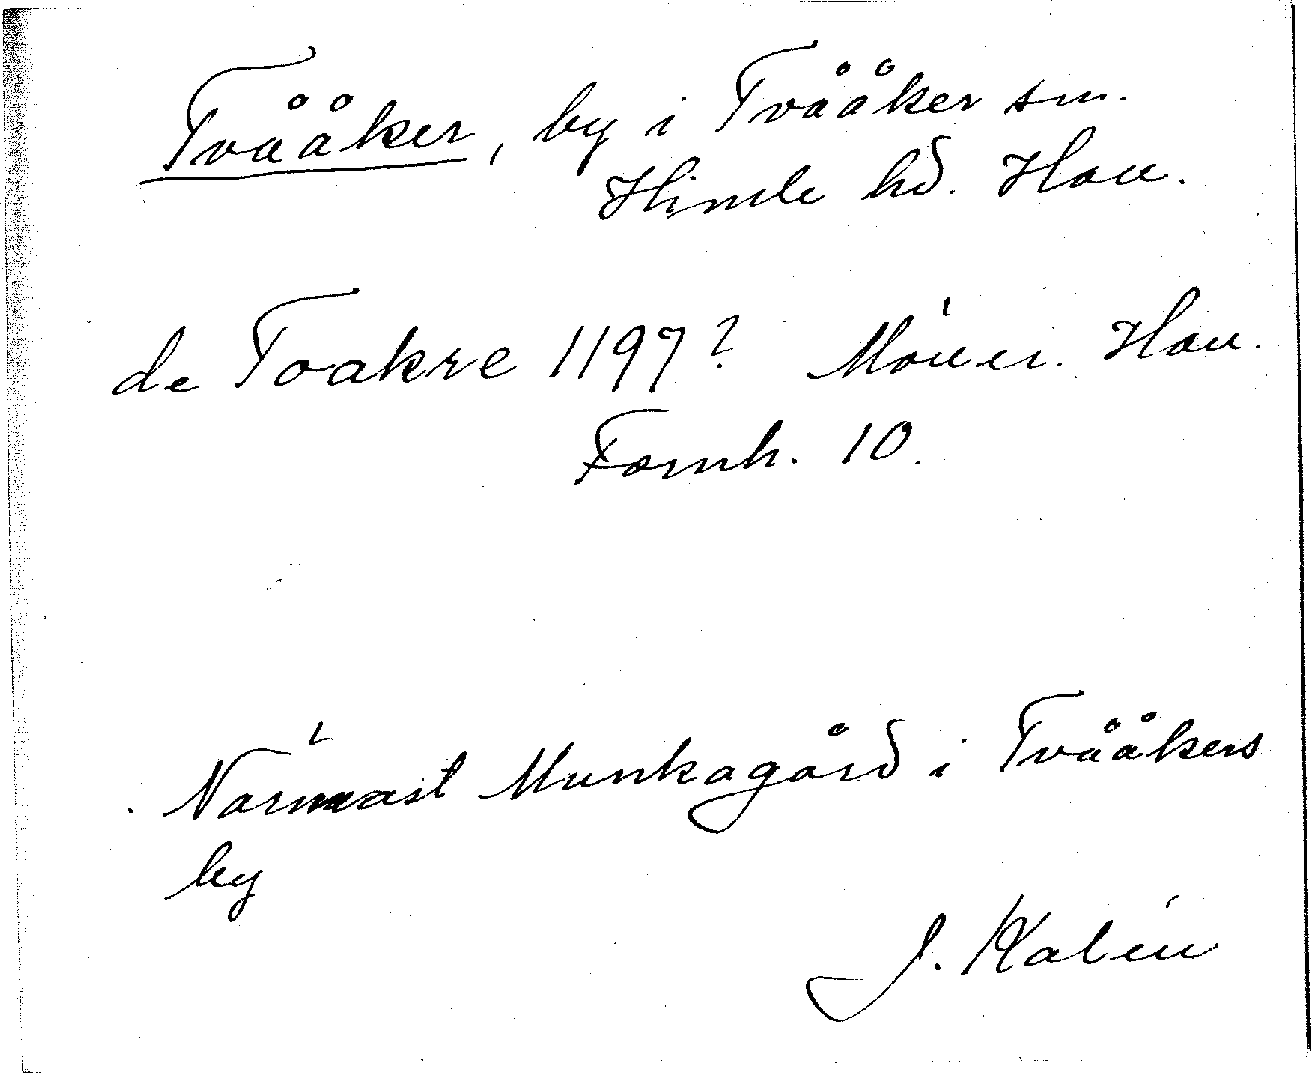 Tvååker, by i Tvååker sn.
Himle hd. Hall.
de Toakre 1197? Möller. Hall.
Fornh. 10.
Närmast Munkagård i Tvååkers
by
J. Kalén